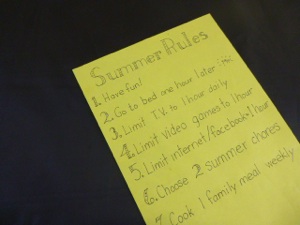 Summer Rules
1. Have fun!
2. Go to bed one hour later
3. Limit T.V. to 1 hour daily
4. Limit video games to 1 hour
5. Limit internet/facebook 1 hour
6. Choose 2 summer chores
7. Cook 1 family meal weekly